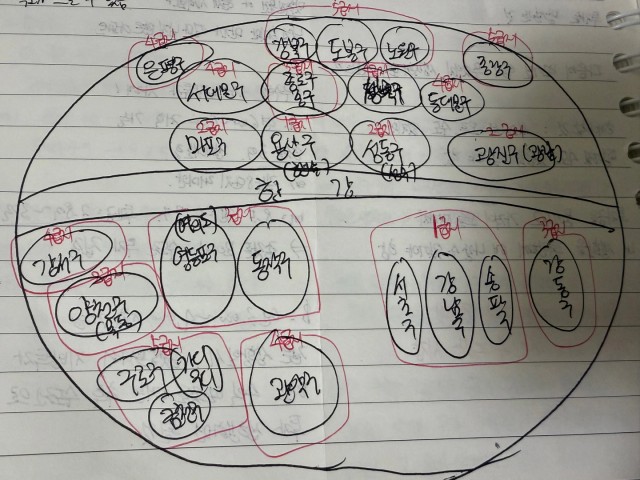 5급지
강북구 도봉구 노원구
4급지
은평구
5급지
중랑구
4급지
서대문구
종로구
중구
성북구
4급지
동대문구
2급지
마포구
1급지
용산구
2급지
성동구
2급지
광진구(광장)
한 강
4급지
강서구
양천구
(목동)
(여의도)
영등포구
동작구
1급지
서초구
강남구
송파구
3급지
강동구
5급지
구로구
금천구
4급지
관악구